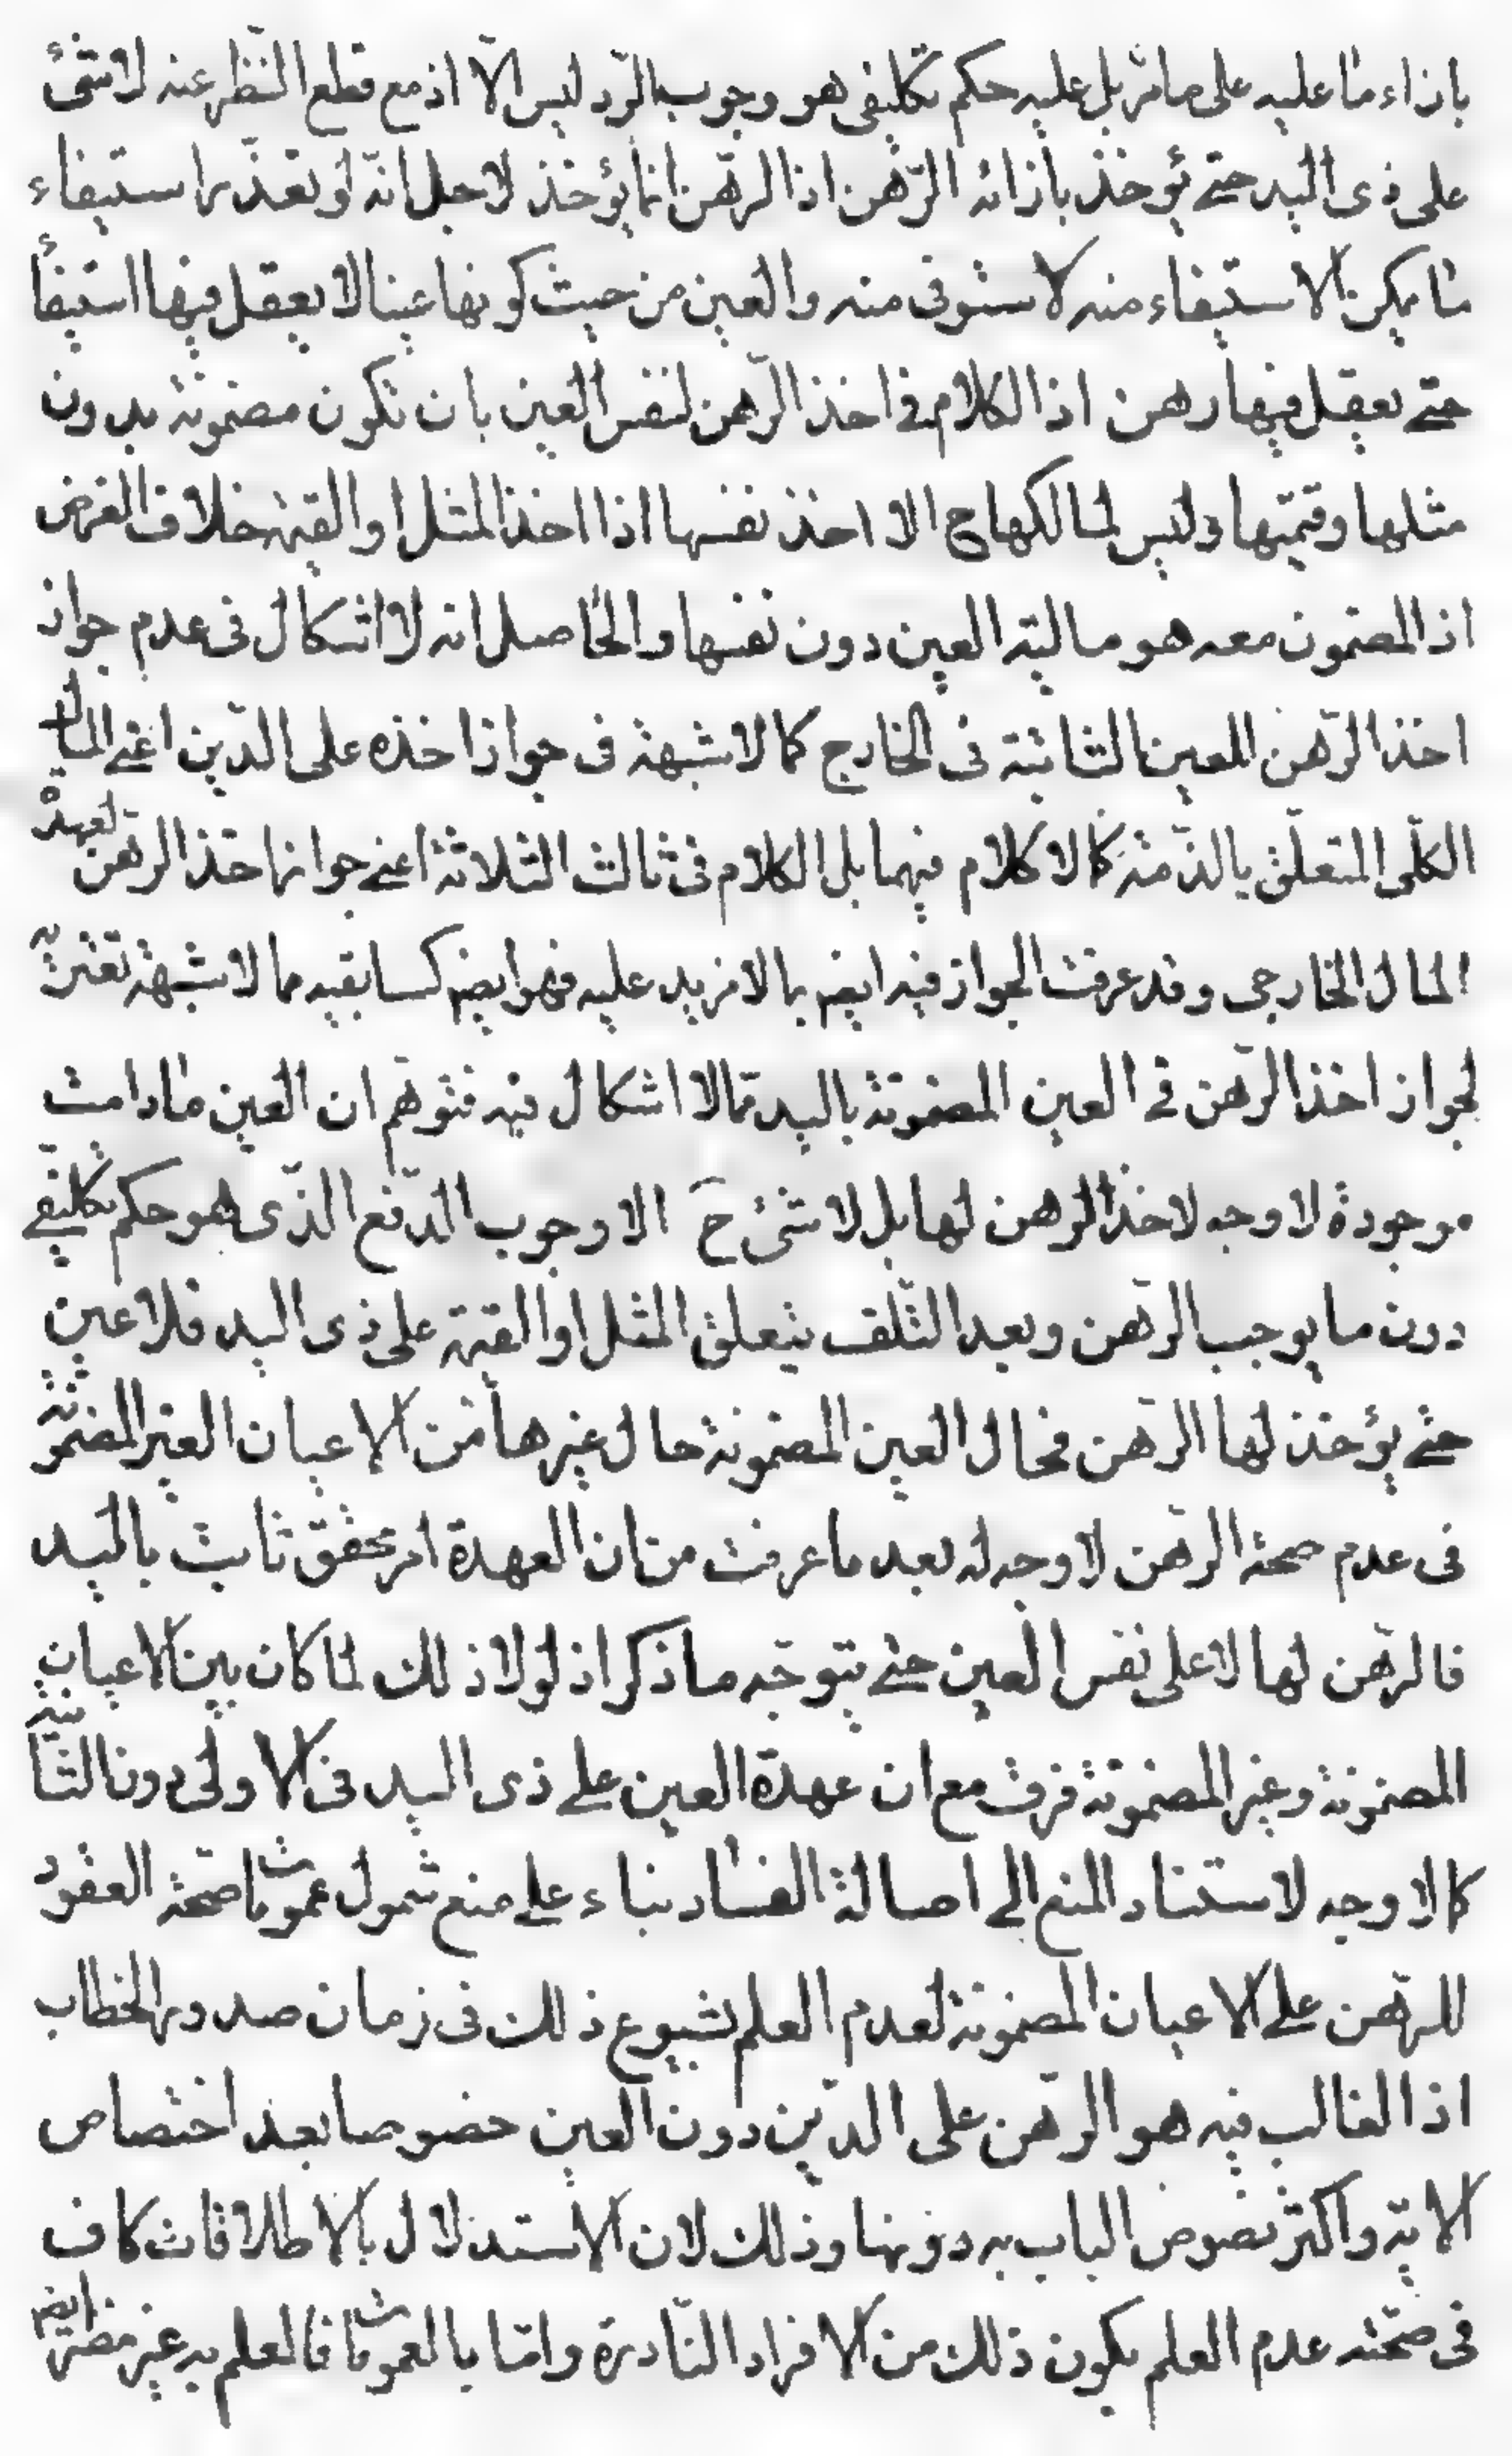 بازاء ما عليه على ما مرّ بل عليه حكم تكليفى هو وجوب الرّد ليس الّا اذ مع قطع النّظر عنه لا شئ
على ذى اليد حتے يؤخذ بازائه الرّهن اذ الرّهن انّما يؤخذ لاجل انّه لو تعذّر استيفاء
ما يمكن الاستيفاء منه لاستوفى منه والعين من حيث كونها عينا لا يعقل فيها استيفاء
حتے يعقل فيها رهن اذ الكلام فى اخذ الرّهن لنفس العين بان تكون مضمونة بدون
مثلها وقيمتها وليس لمالكها ح الا اخذ نفسها اذا اخذ المثل او القيمة خلاف الفرض
اذ المضمون معه هو مالية العين دون نفسها والحاصل انه لا اشكال فى عدم جواز
اخذ الرّهن للعين الثابتة فى الخارج كما لا شبهة فى جواز اخذه على الدّين اعنے المال
الكلّى المتعلّق بالذّمّة كما لا كلام فيهما بل الكلام فى ثالث الثلاثة اعنے جواز اخذ الرّهن لعهدة
المال الخارجى وقد عرفت الجواز فيه ايضم بما لا مزيد عليه فهو ايضم كسابقيه مما لا شبهة تعتريه
لجواز اخذ الرّهن فے العين المضمونة باليد ممّا لا اشكال فيه فتوهّم ان العين ما دامت
موجودة لا وجه لاخذ الرّهن لها بل لا شئ حَ الا وجوب الدّفع الذّى هو حكم تكليفے
دون ما يوجب الرّهن وبعد التّلف يتعلق المثل او القيمة على ذى اليد فلا عين
حتے يؤخذ لها الرّهن فحال العين المضمونة حال غيرها من الاعيان الغير المضمونة
فى عدم صحة الرّهن لا وجه له بعد ما عرفت من ان العهدة امر محقق ثابت باليد
فالرّهن لها لا على نفس العين حتے يتوجّه ما ذكر اذ لولا ذلك لما كان بين الاعيان
المضمونة وغير المضمونة فرق مع ان عهدة العين علے ذى اليد فى الاولى دون الثانية
كما لا وجه لاستناد المنع الے اصالة الفساد بناء علے منع شمول عمومات صحّة العقود
للرّهن علے الاعيان المضمونة لعدم العلم بشيوع ذلك فى زمان صدور الخطاب
اذ الغالب فيه هو الرّهن على الدّين دون العين خصوصا بعد اختصاص
الاية واكثر نصوص الباب به دونها وذلك لان الاستدلال بالاطلاقات كاف
فى صحّته عدم العلم بكون ذلك من الافراد النّادرة وامّا بالعمومات فالعلم به غير مضر ايضم